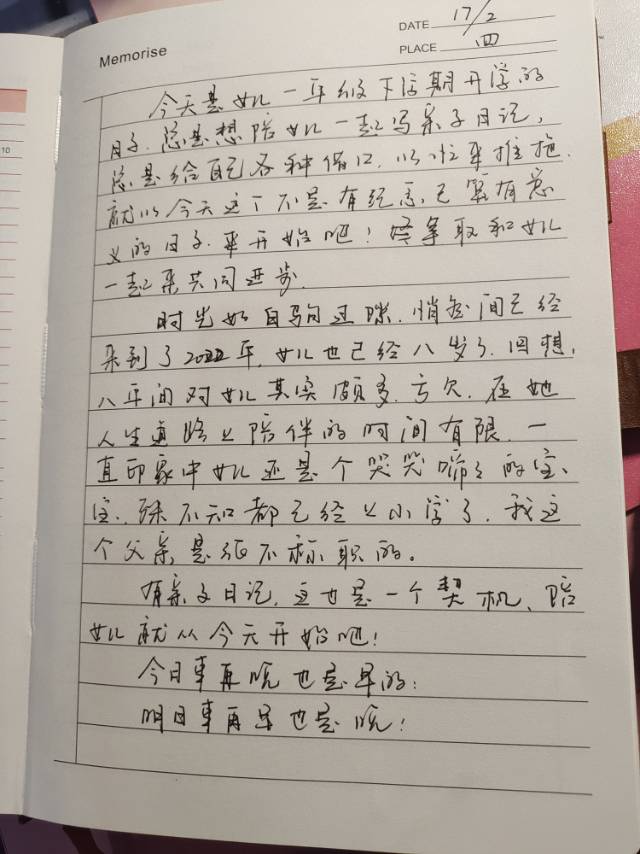 Memorise
DATE 17/2
PLACE 四
今天是女儿一年级下学期开学的
日子.总是想陪女儿一起写亲子日记,
总是给自己各种借口,以忙来推拖.
就从今天这个不是有纪念,但更有意
义的日子.来开始吧!将争取和女儿
一起来共同进步.
时光如白驹过隙.悄然间已经
来到了2022年,女儿也已经八岁了.回想,
八年间对女儿其实颇多.亏欠.在她
人生道路上陪伴的时间有限.一
直印象中女儿还是个哭哭啼啼的宝
宝.殊不知都已经上小学了.我这
个父亲是很不称职的。
有亲子日记,这也是一个契机、陪
女儿就从今天开始吧!
今日事再晚也是早的;
明日事再早也是晚!
10